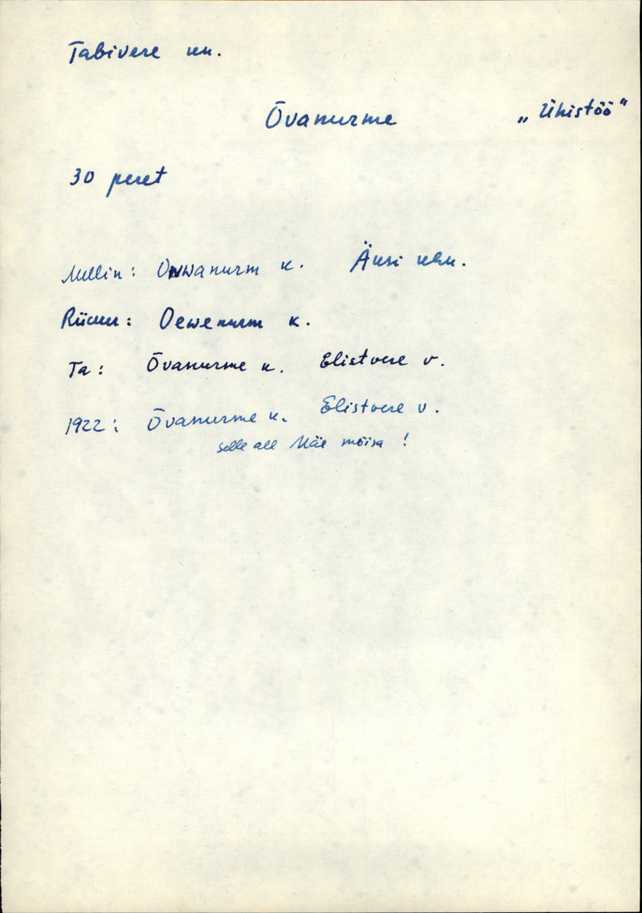 Tabivere kn.
Õvanurme „Ühistöö"
30 peret
Mellin: Owwanurm k. Äksi khk.
Rücker: Oewenurm k.
Ta: Õvanurme k. Elistvere v.
1922: Õvanurme k. Elistvere v.
selle all Mäe mõisa !